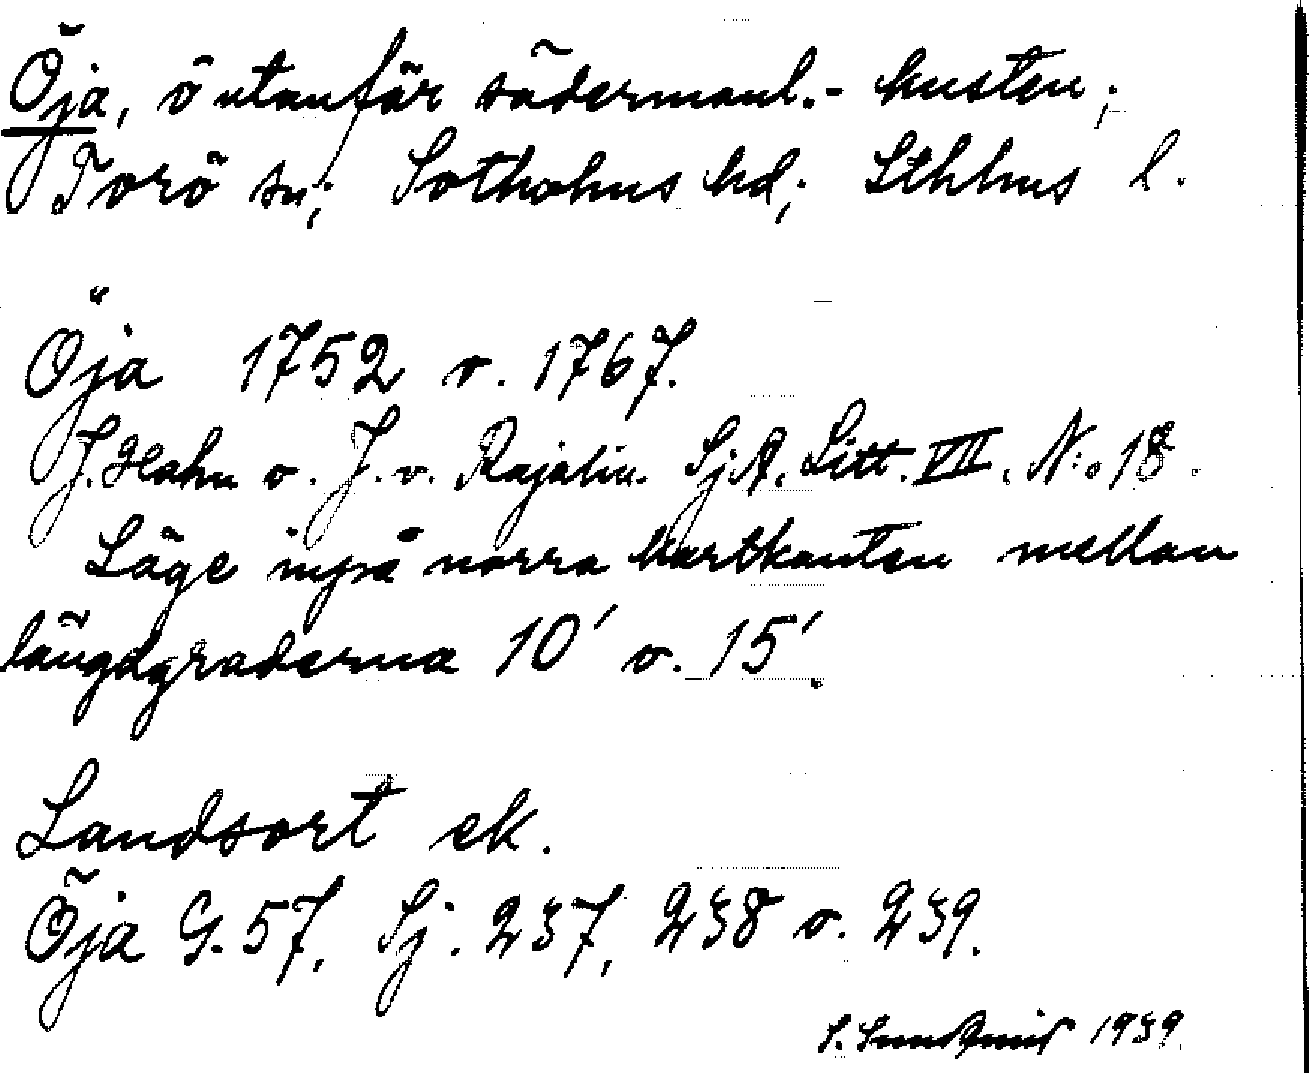 Öja, ö utanför södermanl.- kusten;
Torö sn; Sotholms hd; Sthlms l.
Öja 1752 o. 1767.
J. Hahn o. J. v. Rajalin. Sj.A. Litt. VIII. N:o 18.
Läge invpå norra kartkanten mellan
längdgraderna 10′ o. 15′.
Landsort ek.
Öja G. 57, Sj. 237, 238 o. 239.
S. 1939